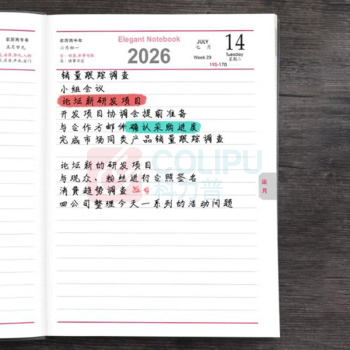 Elegant Notebook
2026
JULY
七月
14
Tuesday
星期二
Week 29
195-170
销量跟踪调查
小组会议
论坛新研发项目
开发项目协调会提前准备
与合作方邮件确认采购进度
完成市场同类产品销量跟踪调查
论坛新的研发项目
与观众，粉丝进行合照签名
消费趋势调查
回公司整理今天一系列的活动问题
COLIPU
科力普
七月